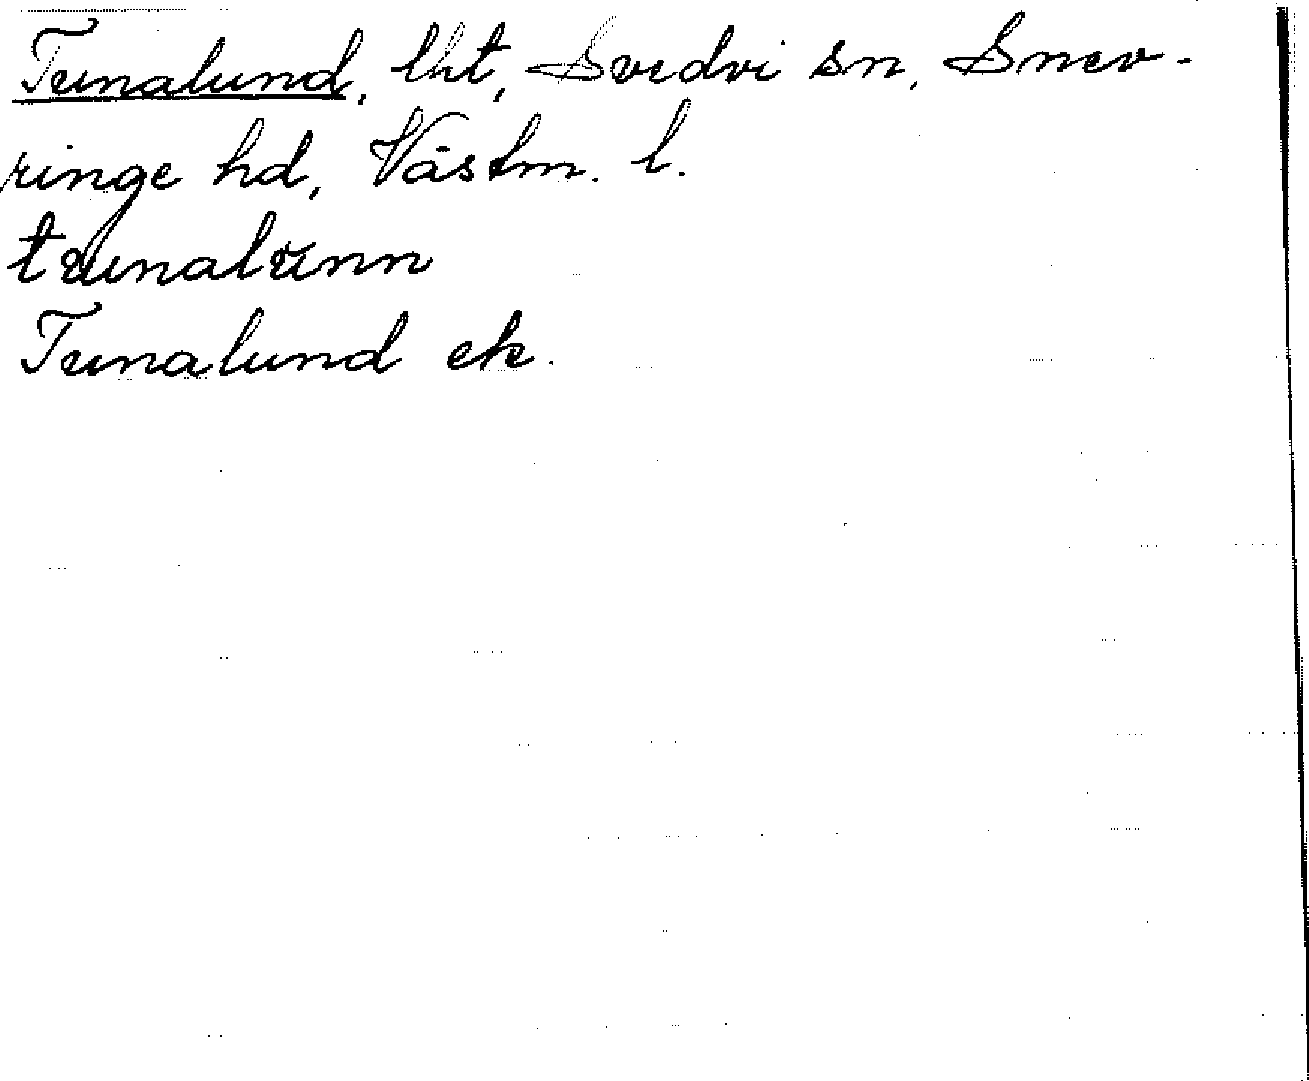 Tunalund, lht, Svedvi sn, Snev-
ringe hd, Västm. l.
tunalunn
Tunalund ek.